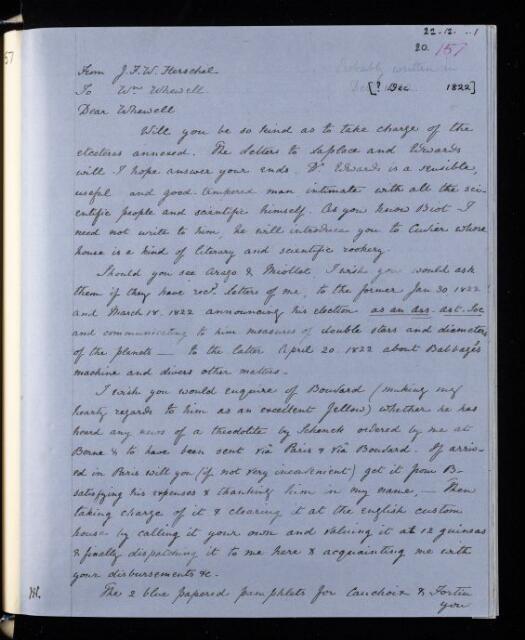 22.12...1
20. 157
57
From J.F.W. Herschel
Probably written in
To Wm Whewell
Dec [? Dec 1822]
Dear Whewell
Will you be so kind as to take charge of the
eletters annexed. The letters to Laplace and Edwards
will I hope answer your ends. Dr. Edwards is a sensible,
useful and good-tempered man intimate with all the sci-
entific people and scientific himself. As you know Biot I
need not write to him, he will introduce you to Cuvier whose
house is a kind of literary and scientific rookery.
Should you see Arago & Nicollet, I wish you would ask
them if they have recd. letters of me, to the former Jan 30 1822
and March 18. 1822 announcing his election as an ass. ast. Soc
and communicating to him measures of double stars and diameters
of the planets — to the latter April 20. 1822 about Babbage's
machine and divers other matters.
I wish you would enquire of Bouvard (making my
hearty regards to him as an excellent fellow) whether he has
heard any news of a theodolite by Schenck ordered by me at
Berne & to have been sent via Paris & via Bouvard. If arriv-
ed in Paris will you (if not very inconvenient) get it from B-
satisfying his expenses & thanking him in my name, — Then
taking charge of it & clearing it at the english custom
house by calling it your own and valuing it at 12 guineas
& finally dispatching it to me here & acquainting me with
your disbursements &c.
The 2 blue papered pamphlets for Cauchoix & Fortin
you